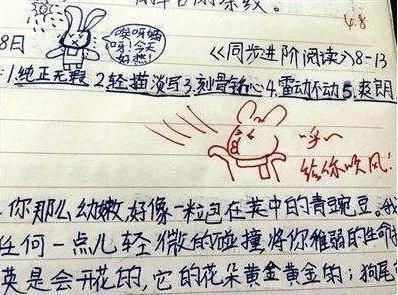 4.8
8日
哎呀妈呀!今天好热!
《同步进阶阅读》8-13
1.纯正无瑕 2.轻描淡写 3.刻骨铭心 4.雷动不动 5.爽朗
呼~
给你吹风!
你那么幼嫩,好像一粒包在荚中的青豌豆。我
任何一点儿轻微的碰撞将你稚弱的生命
英是会开花的,它的花朵黄金黄金的;狗尾